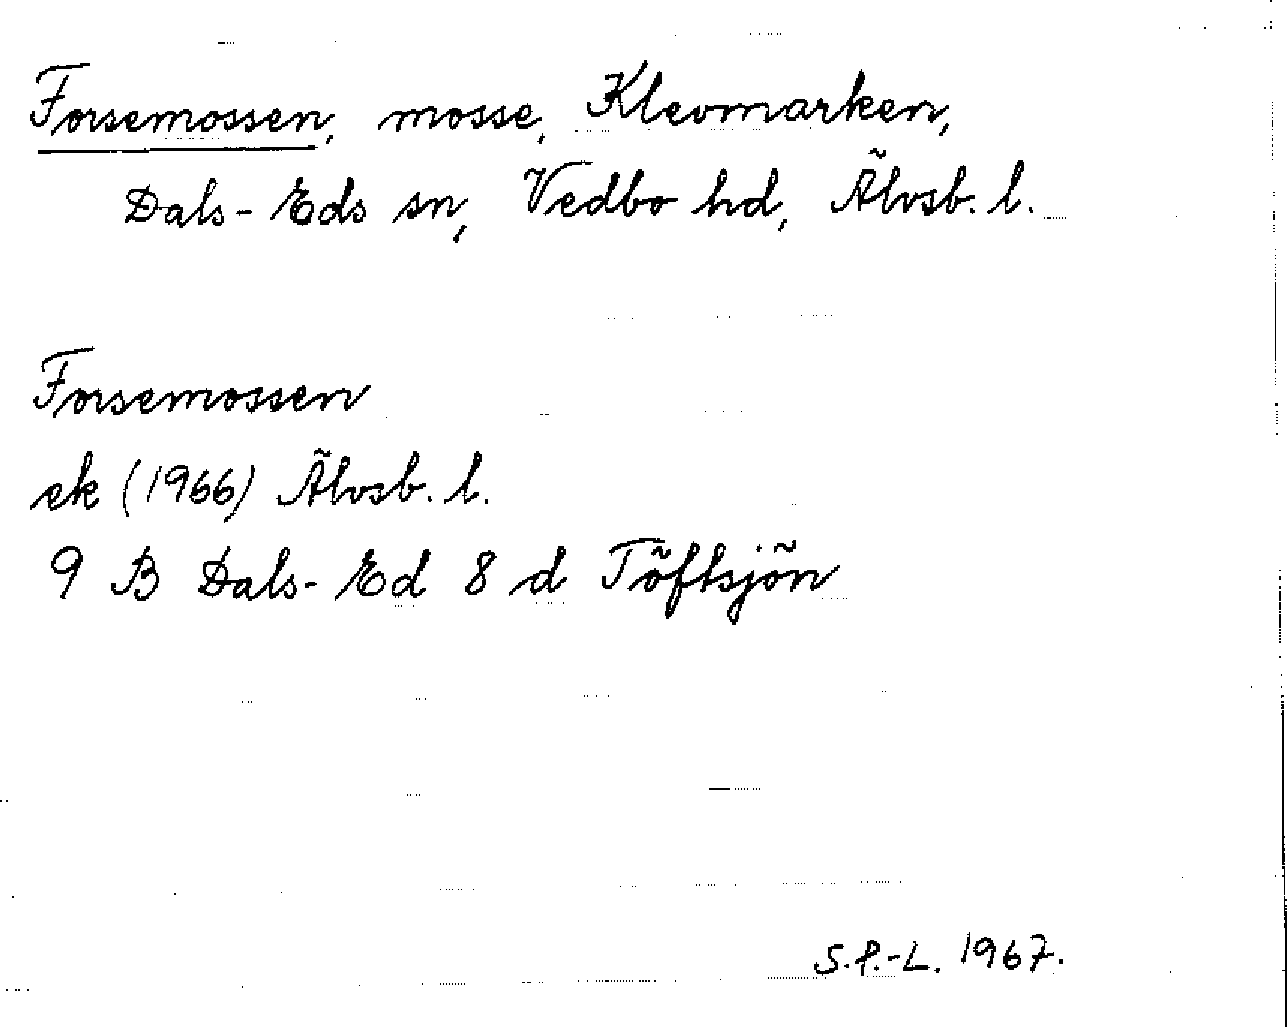 Forsemossen, mosse, Klevmarken,
Dals-Eds sn, Vedbo hd, Älvsb. l.
Forsemossen
ek (1966) Älvsb. l.
9 B Dals-Ed 8 d Töftsjön
S.P.-L. 1967.